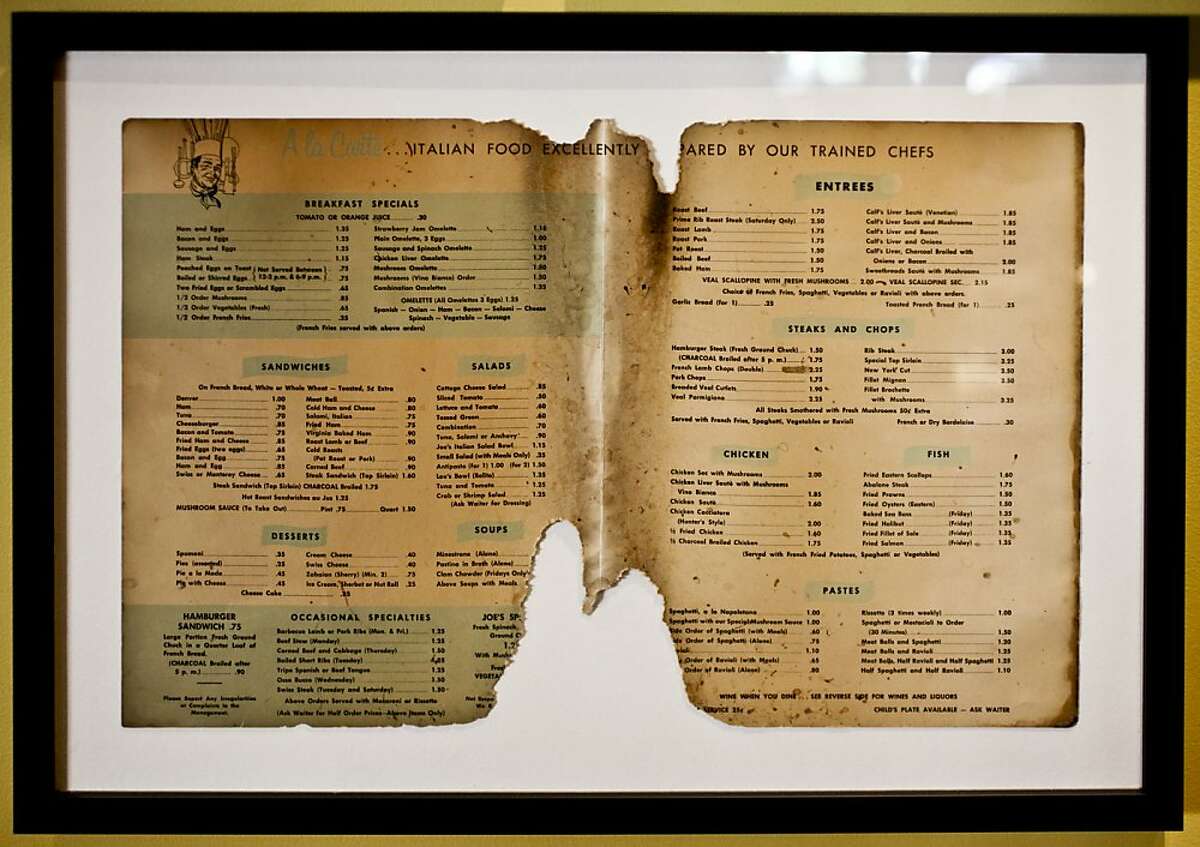 A la Carte... ITALIAN FOOD EXCELLENTLY PARED BY OUR TRAINED CHEFS
BREAKFAST SPECIALS
TOMATO OR ORANGE JUICE .30
Ham and Eggs 1.35
Bacon and Eggs 1.25
Sausage and Eggs 1.25
Ham Steak 1.15
Poached Eggs on Toast .75
Boiled or Shirred Eggs .75
Not Served Between
12-2 p.m. & 6-9 p.m.
Two Fried Eggs or Scrambled Eggs .65
1/2 Order Mushrooms .85
1/2 Order Vegetables (Fresh) .65
1/2 Order French Fries .35
Strawberry Jam Omelette 1.15
Plain Omelette, 3 Eggs 1.00
Sausage and Spinach Omelette 1.25
Chicken Liver Omelette 1.75
Mushroom Omelette 1.50
Mushrooms (Vino Bianco) Order 1.50
Combination Omelettes 1.35
OMELETTE (All Omelettes 3 Eggs) 1.25
Spanish – Onion – Ham – Bacon – Salami – Cheese
Spinach – Vegetable – Sausage
(French Fries served with above orders)
SANDWICHES
On French Bread, White or Whole Wheat – Toasted, 5¢ Extra
Denver 1.00
Ham .70
Tuna .70
Cheeseburger .85
Bacon and Tomato .75
Fried Ham and Cheese .85
Fried Eggs (two eggs) .65
Bacon and Egg .75
Ham and Egg .85
Swiss or Monterey Cheese .65
Meat Ball .80
Cold Ham and Cheese .80
Salami, Italian .75
Fried Ham .75
Virginia Baked Ham .90
Roast Lamb or Beef .90
Cold Roasts
(Pot Roast or Pork) .90
Corned Beef .90
Steak Sandwich (Top Sirloin) 1.60
Steak Sandwich (Top Sirloin) CHARCOAL Broiled 1.75
Hot Roast Sandwiches au Jus 1.25
MUSHROOM SAUCE (To Take Out) Pint .75 Quart 1.50
SALADS
Cottage Cheese Salad .85
Sliced Tomato .50
Lettuce and Tomato .60
Tossed Green .60
Combination .70
Tuna, Salami or Anchovy .90
Joe's Italian Salad Bowl 1.15
Small Salad (with Meals Only) .35
Antipasto (for 1) 1.00 (for 2) 1.50
Leo's Bowl (Bolito) 1.35
Tuna and Tomato 1.25
Crab or Shrimp Salad 1.25
(Ask Waiter for Dressing)
DESSERTS
Spumoni .35
Pies (assorted) .25
Pie a la Mode .45
Pie with Cheese .45
Cream Cheese .40
Swiss Cheese .40
Zabaion (Sherry) (Min. 2) .75
Ice Cream, Sherbet or Hot Roll .25
Cheese Cake .35
SOUPS
Minestrone (Alone)
Pastina in Broth (Alone)
Clam Chowder (Fridays Only
Above Soups with Meals
HAMBURGER
SANDWICH .75
Large Portion Fresh Ground
Chuck in a Quarter Loaf of
French Bread.
(CHARCOAL Broiled after
5 p.m.) .90
Please Report Any Irregularities
or Complaints to the
Management.
OCCASIONAL SPECIALTIES
Barbecue Lamb or Pork Ribs (Mon. & Fri.) 1.25
Beef Stew (Monday) 1.25
Corned Beef and Cabbage (Thursday) 1.50
Boiled Short Ribs (Tuesday)
Tripe Spanish or Beef Tongue 1.25
Osso Bucco (Wednesday) 1.50
Swiss Steak (Tuesday and Saturday) 1.50
Above Orders Served with Macaroni or Rissotto
(Ask Waiter for Half Order Prices–Above Items Only)
JOE'S SP
Fresh Spinach,
Ground
1.2
With Mush
Fre
VEGETA
Not Res
We R
ENTREES
Roast Beef 1.75
Prime Rib Roast Steak (Saturday Only) 2.50
Roast Lamb 1.75
Roast Pork 1.75
Pot Roast 1.50
Boiled Beef 1.50
Baked Ham 1.75
Calf's Liver Sauté (Venetian) 1.85
Calf's Liver Sauté and Mushrooms 1.85
Calf's Liver and Bacon 1.85
Calf's Liver and Onions 1.85
Calf's Liver, Charcoal Broiled with
Onions or Bacon 2.00
Sweetbreads Sauté with Mushrooms 1.85
VEAL SCALLOPINE WITH FRESH MUSHROOMS 2.00 VEAL SCALLOPINE SEC 2.15
Choice of French Fries, Spaghetti, Vegetables or Ravioli with above orders.
Garlic Bread (for 1) .25 Toasted French Bread (for 1) .25
STEAKS AND CHOPS
Hamburger Steak (Fresh Ground Chuck) 1.50
(CHARCOAL Broiled after 5 p.m.) 1.75
French Lamb Chops (Double) 2.25
Pork Chops 1.75
Breaded Veal Cutlets 1.90
Veal Parmigiana 2.25
Rib Steak 2.00
Special Top Sirloin 2.25
New York Cut 3.50
Fillet Mignon 3.50
Fillet Brochette
with Mushrooms 3.25
All Steaks Smothered with Fresh Mushrooms 50¢ Extra
Served with French Fries, Spaghetti, Vegetables or Ravioli French or Dry Bordelaise .30
CHICKEN
Chicken Sec with Mushrooms 2.00
Chicken Liver Sauté with Mushrooms
Vino Bianco 1.85
Chicken Sauté 1.60
Chicken Cacciatora
(Hunter's Style) 2.00
½ Fried Chicken 1.60
½ Charcoal Broiled Chicken 1.75
FISH
Fried Eastern Scallops 1.60
Abalone Steak 1.75
Fried Prawns 1.50
Fried Oysters (Eastern) 1.50
Baked Sea Bass (Friday) 1.35
Fried Halibut (Friday) 1.35
Fried Fillet of Sole (Friday) 1.35
Fried Salmon (Friday) 1.35
(Served with French Fried Potatoes, Spaghetti or Vegetables)
PASTES
Spaghetti, a la Napoletana 1.00
Spaghetti with our Special Mushroom Sauce 1.00
ide Order of Spaghetti (with Meals) .60
ide Order of Spaghetti (Alone) .75
violi 1.10
Order of Ravioli (with Meals) .65
er Order of Ravioli (Alone) .80
Rissotto (3 times weekly) 1.00
Spaghetti or Mostacioli to Order
(30 Minutes) 1.50
Meat Balls and Spaghetti 1.30
Meat Balls and Ravioli 1.25
Meat Balls, Half Ravioli and Half Spaghetti 1.25
Half Spaghetti and Half Ravioli 1.10
WINE WHEN YOU DINE... SEE REVERSE SIDE FOR WINES AND LIQUORS
SERVICE 25¢ CHILD'S PLATE AVAILABLE – ASK WAITER